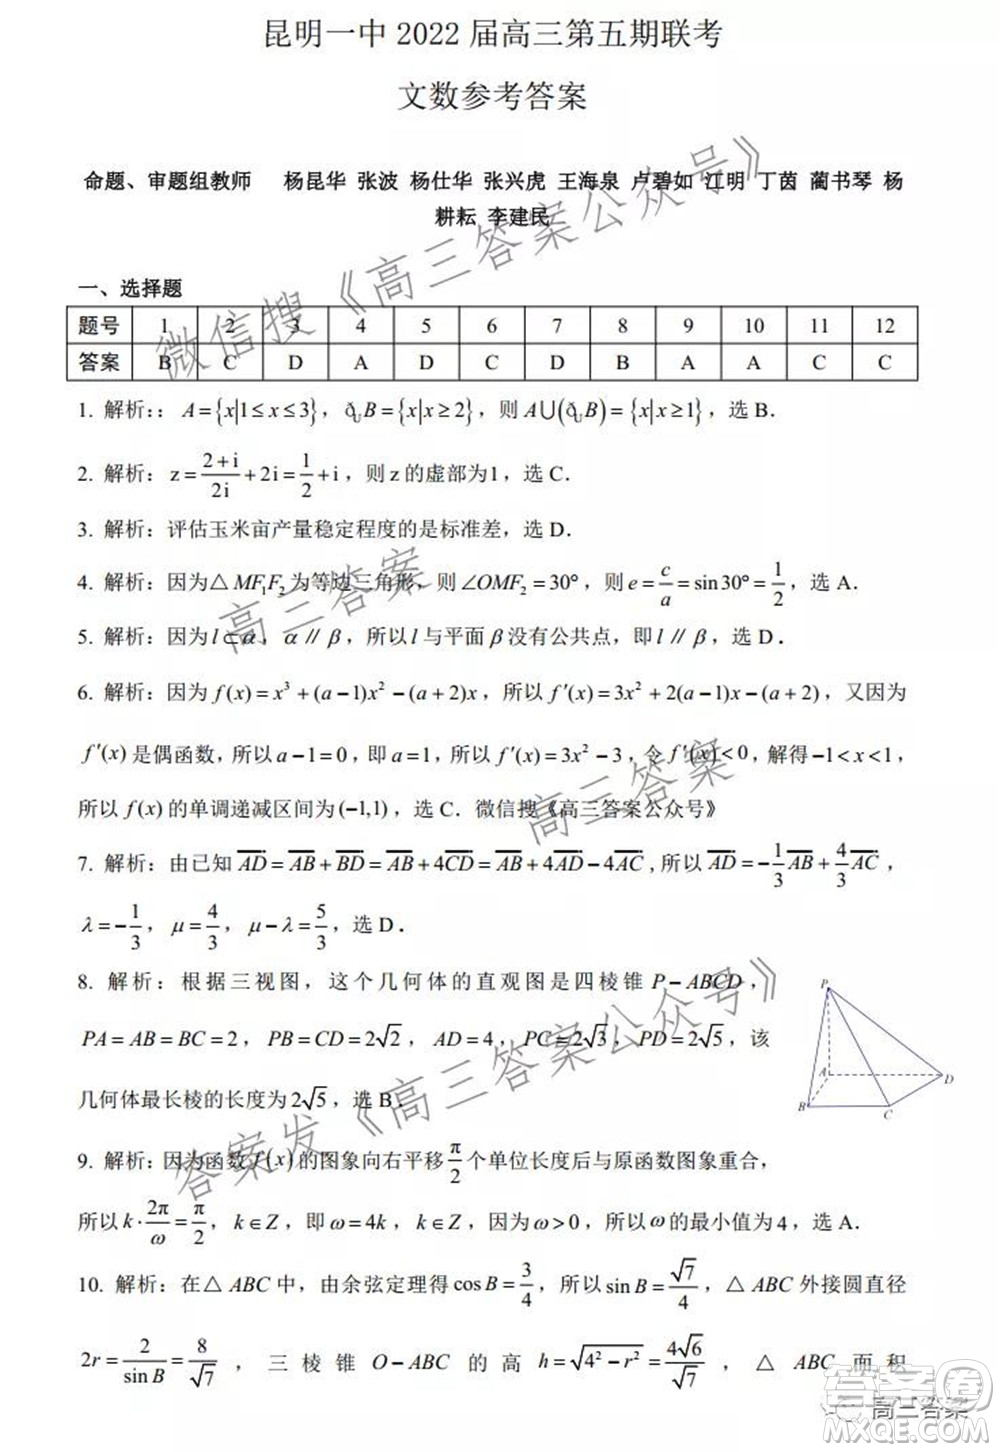 昆明一中 2022 届高三第五期联考
文数参考答案
命题、审题组教师 杨昆华 张波 杨仕华 张兴虎 王海泉 卢碧如 江明 丁茵 蔺书琴 杨
耕耘 李建民
一、选择题
题号 1 2 3 4 5 6 7 8 9 10 11 12
答案 B C D A D C D B A A C C
1. 解析:：A={x|1≤x≤3}，ð_U B={x|x≥2}，则 A∪(ð_U B)={x|x≥1}，选 B．
2. 解析：z=(2+i)/(2i)+2i=1/2+i，则 z 的虚部为1，选 C．
3. 解析：评估玉米亩产量稳定程度的是标准差，选 D．
4. 解析：因为△MF₁F₂为等边三角形，则∠OMF₂=30°，则 e=c/a=sin30°=1/2，选 A．
5. 解析：因为 l⊂α，α∥β，所以 l 与平面β没有公共点，即 l∥β，选 D．
6. 解析：因为 f(x)=x³+(a−1)x²−(a+2)x，所以 f′(x)=3x²+2(a−1)x−(a+2)，又因为
f′(x)是偶函数，所以 a−1=0，即 a=1，所以 f′(x)=3x²−3，令 f′(x)<0，解得−1<x<1，
所以 f(x) 的单调递减区间为(−1,1)，选 C．微信搜《高三答案公众号》
7. 解析：由已知 AD=AB+BD=AB+4CD=AB+4AD−4AC,所以 AD=−1/3AB+4/3AC，
λ=−1/3，μ=4/3，μ−λ=5/3，选 D．
8. 解析：根据三视图，这个几何体的直观图是四棱锥 P−ABCD，
PA=AB=BC=2，PB=CD=2√2，AD=4，PC=2√3，PD=2√5，该
几何体最长棱的长度为2√5，选 B．
P
A
D
B
C
9. 解析：因为函数 f(x)的图象向右平移π/2个单位长度后与原函数图象重合，
所以 k·2π/ω=π/2，k∈Z，即ω=4k，k∈Z，因为ω>0，所以ω的最小值为4，选 A．
10. 解析：在△ABC 中，由余弦定理得cosB=3/4，所以sinB=√7/4，△ABC 外接圆直径
2r=2/sinB=8/√7，三棱锥 O−ABC 的高 h=√(4²−r²)=4√6/√7，△ABC 面积
微信搜《高三答案公众号》
高三答案
高三答案
答案发《高三答案公众号》
高三答案
答案圈
MXQE.COM